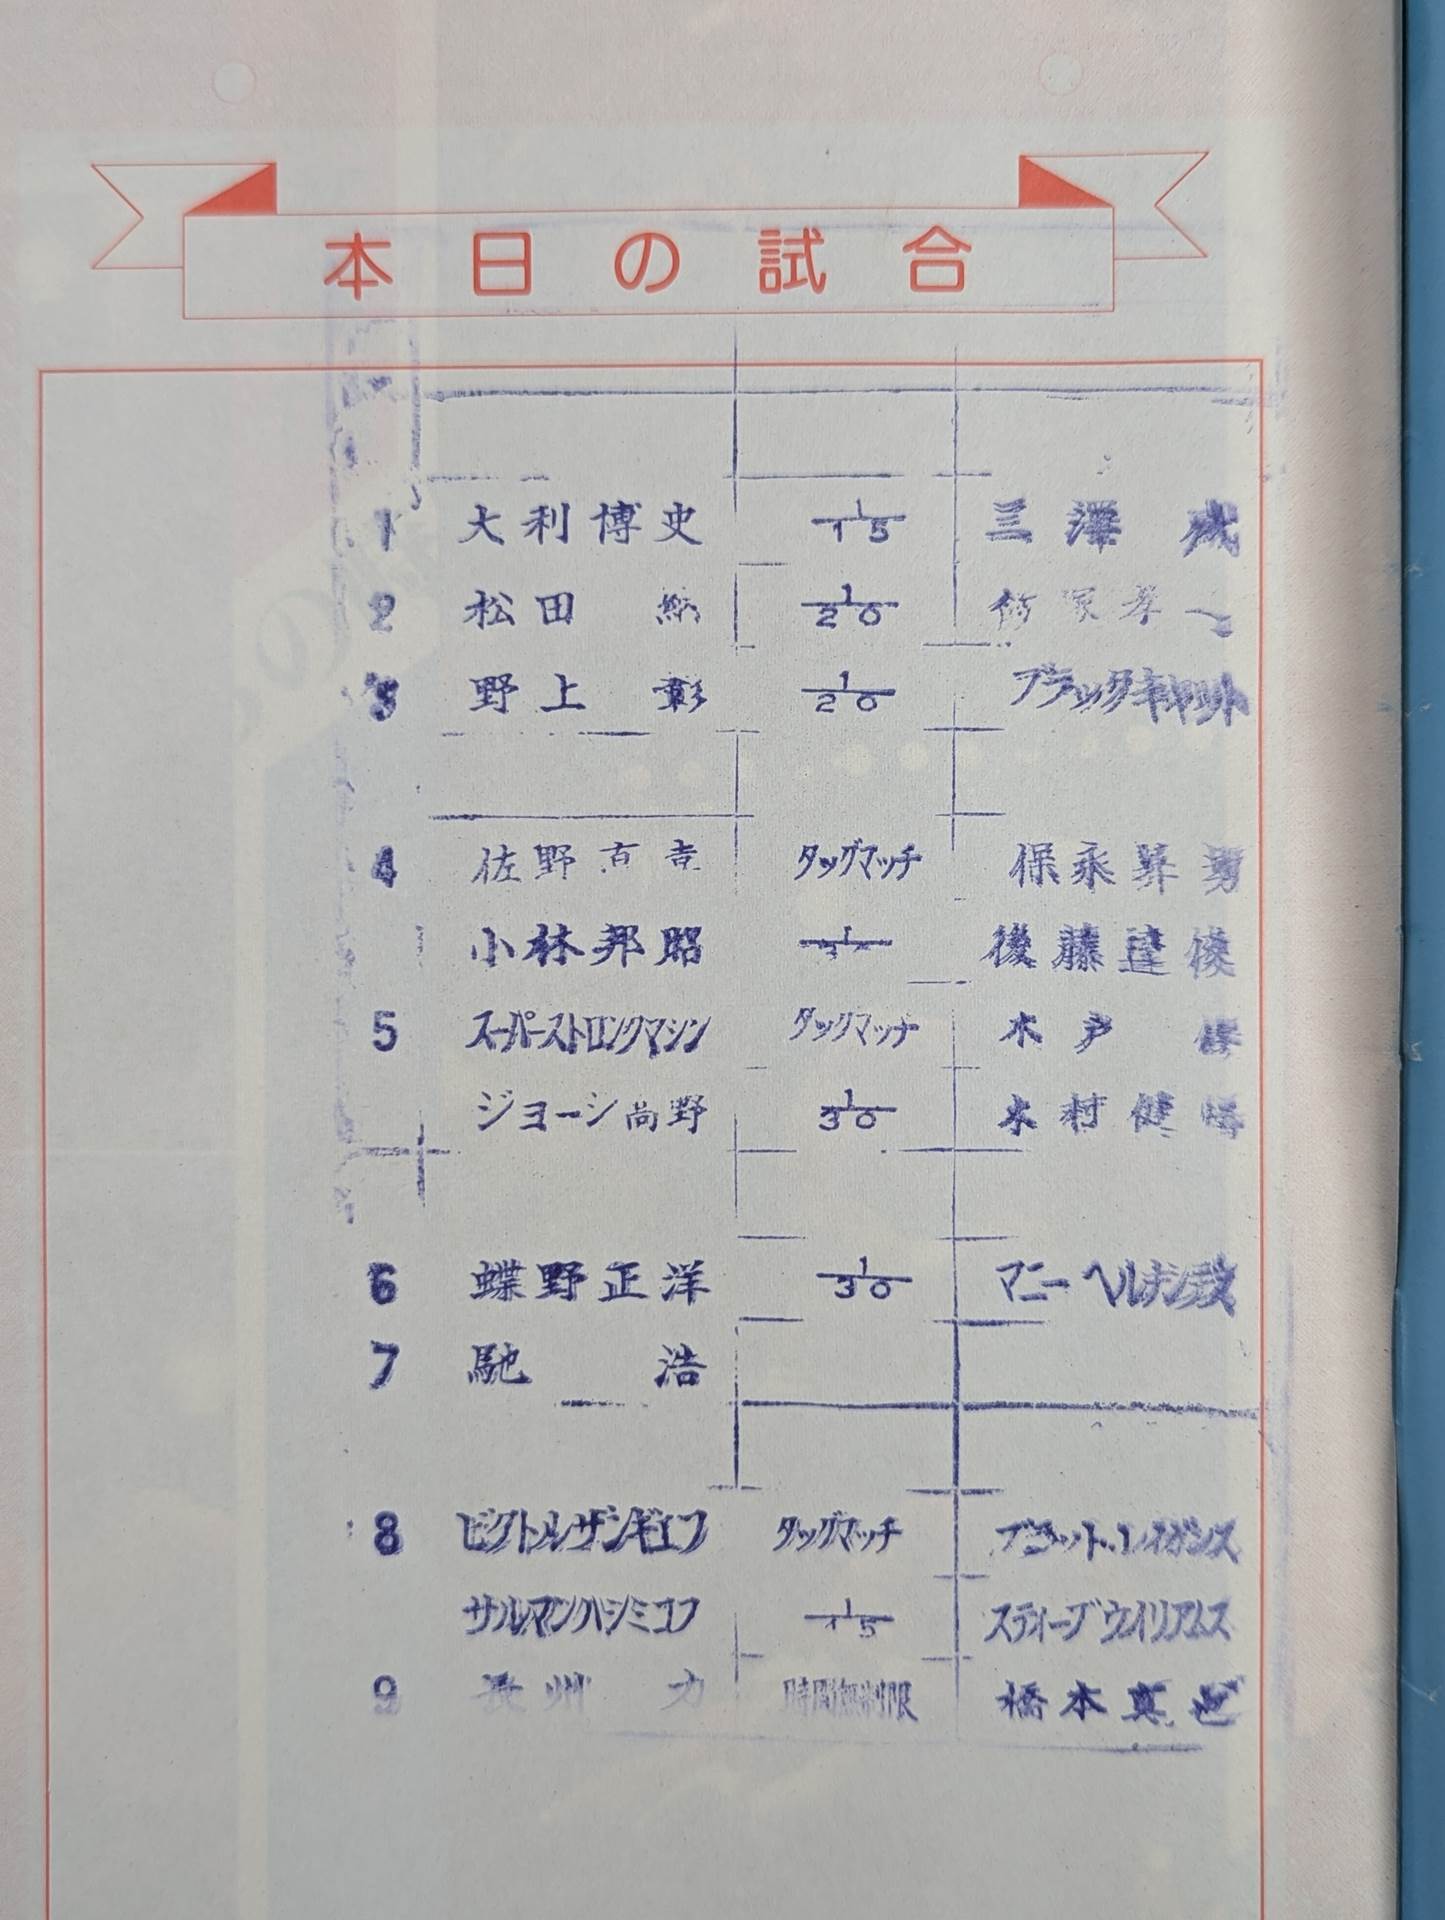 本日の試合
1 大利博史 1/15 三澤 威
2 松田 納 1/20 飯塚孝一
3 野上 彰 1/20 ブラックキャット
4 佐野直喜 タッグマッチ 保永昇男
小林邦昭 後藤達俊
5 スーパーストロングマシン タッグマッチ 木戸 修
ジョージ高野 1/30 木村健悟
6 蝶野正洋 1/30 マニーヘルナンデス
7 馳 浩
8 ビクトルザンギエフ タッグマッチ ブラット・レイガンス
サルマンハシミコフ 1/15 スティーブウイリアムス
9 長州 力 時間無制限 橋本真也